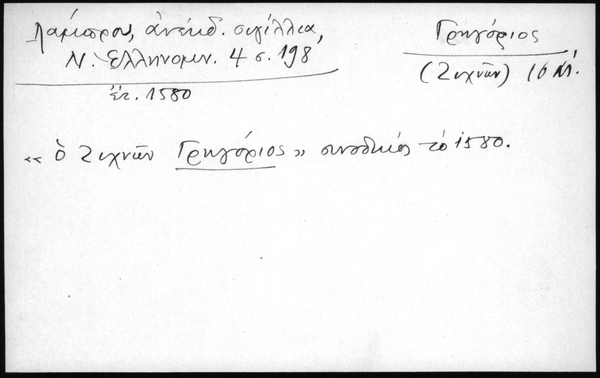 Λάμπρου, ἀνέκδ. σιγίλλια,
Ν. Ἑλληνομν. 4 σ. 198
ἔτ. 1580
Γρηγόριος
(Ζιχνῶν) 16
« ὁ Ζιχνῶν Γρηγόριος » συνοδικός τό 1580.